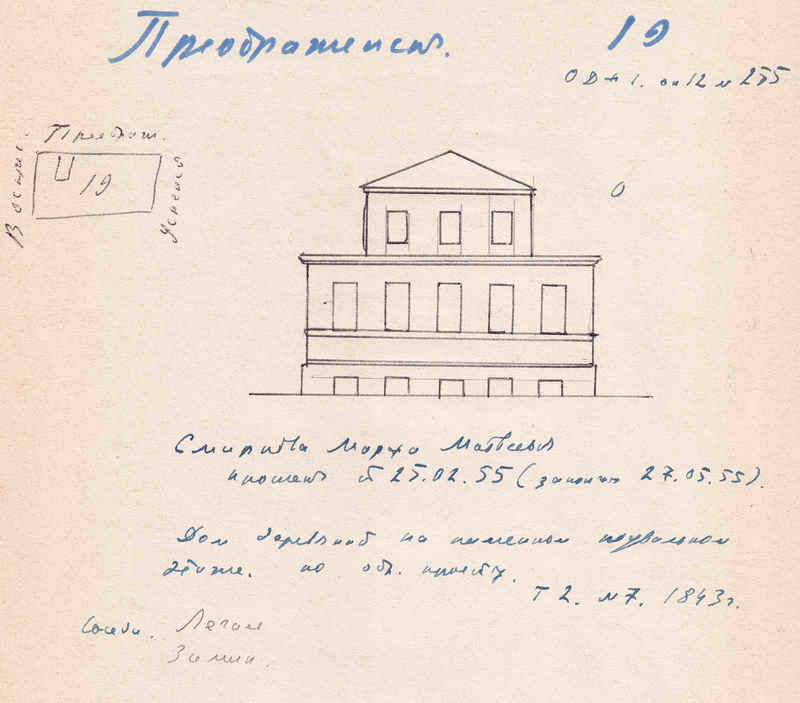 Преображенск. 19
О Д+1. оп 12 № 255
Преображ.
19
Смирнова Марфа Матвеевн
прошение от 25.02.55 (закончен 27.05.55).
Дом деревянный на каменном подвальном
этаже. по обр. проекту.
Т 2. №7. 1843 г.
Соседи. Легат
Зимин.